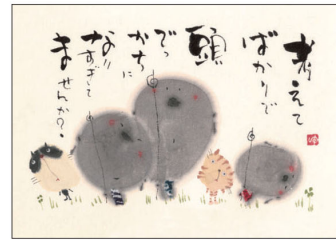 考えて
ばかりで
頭
でっ
かちに
なり
すぎて
ませんか?